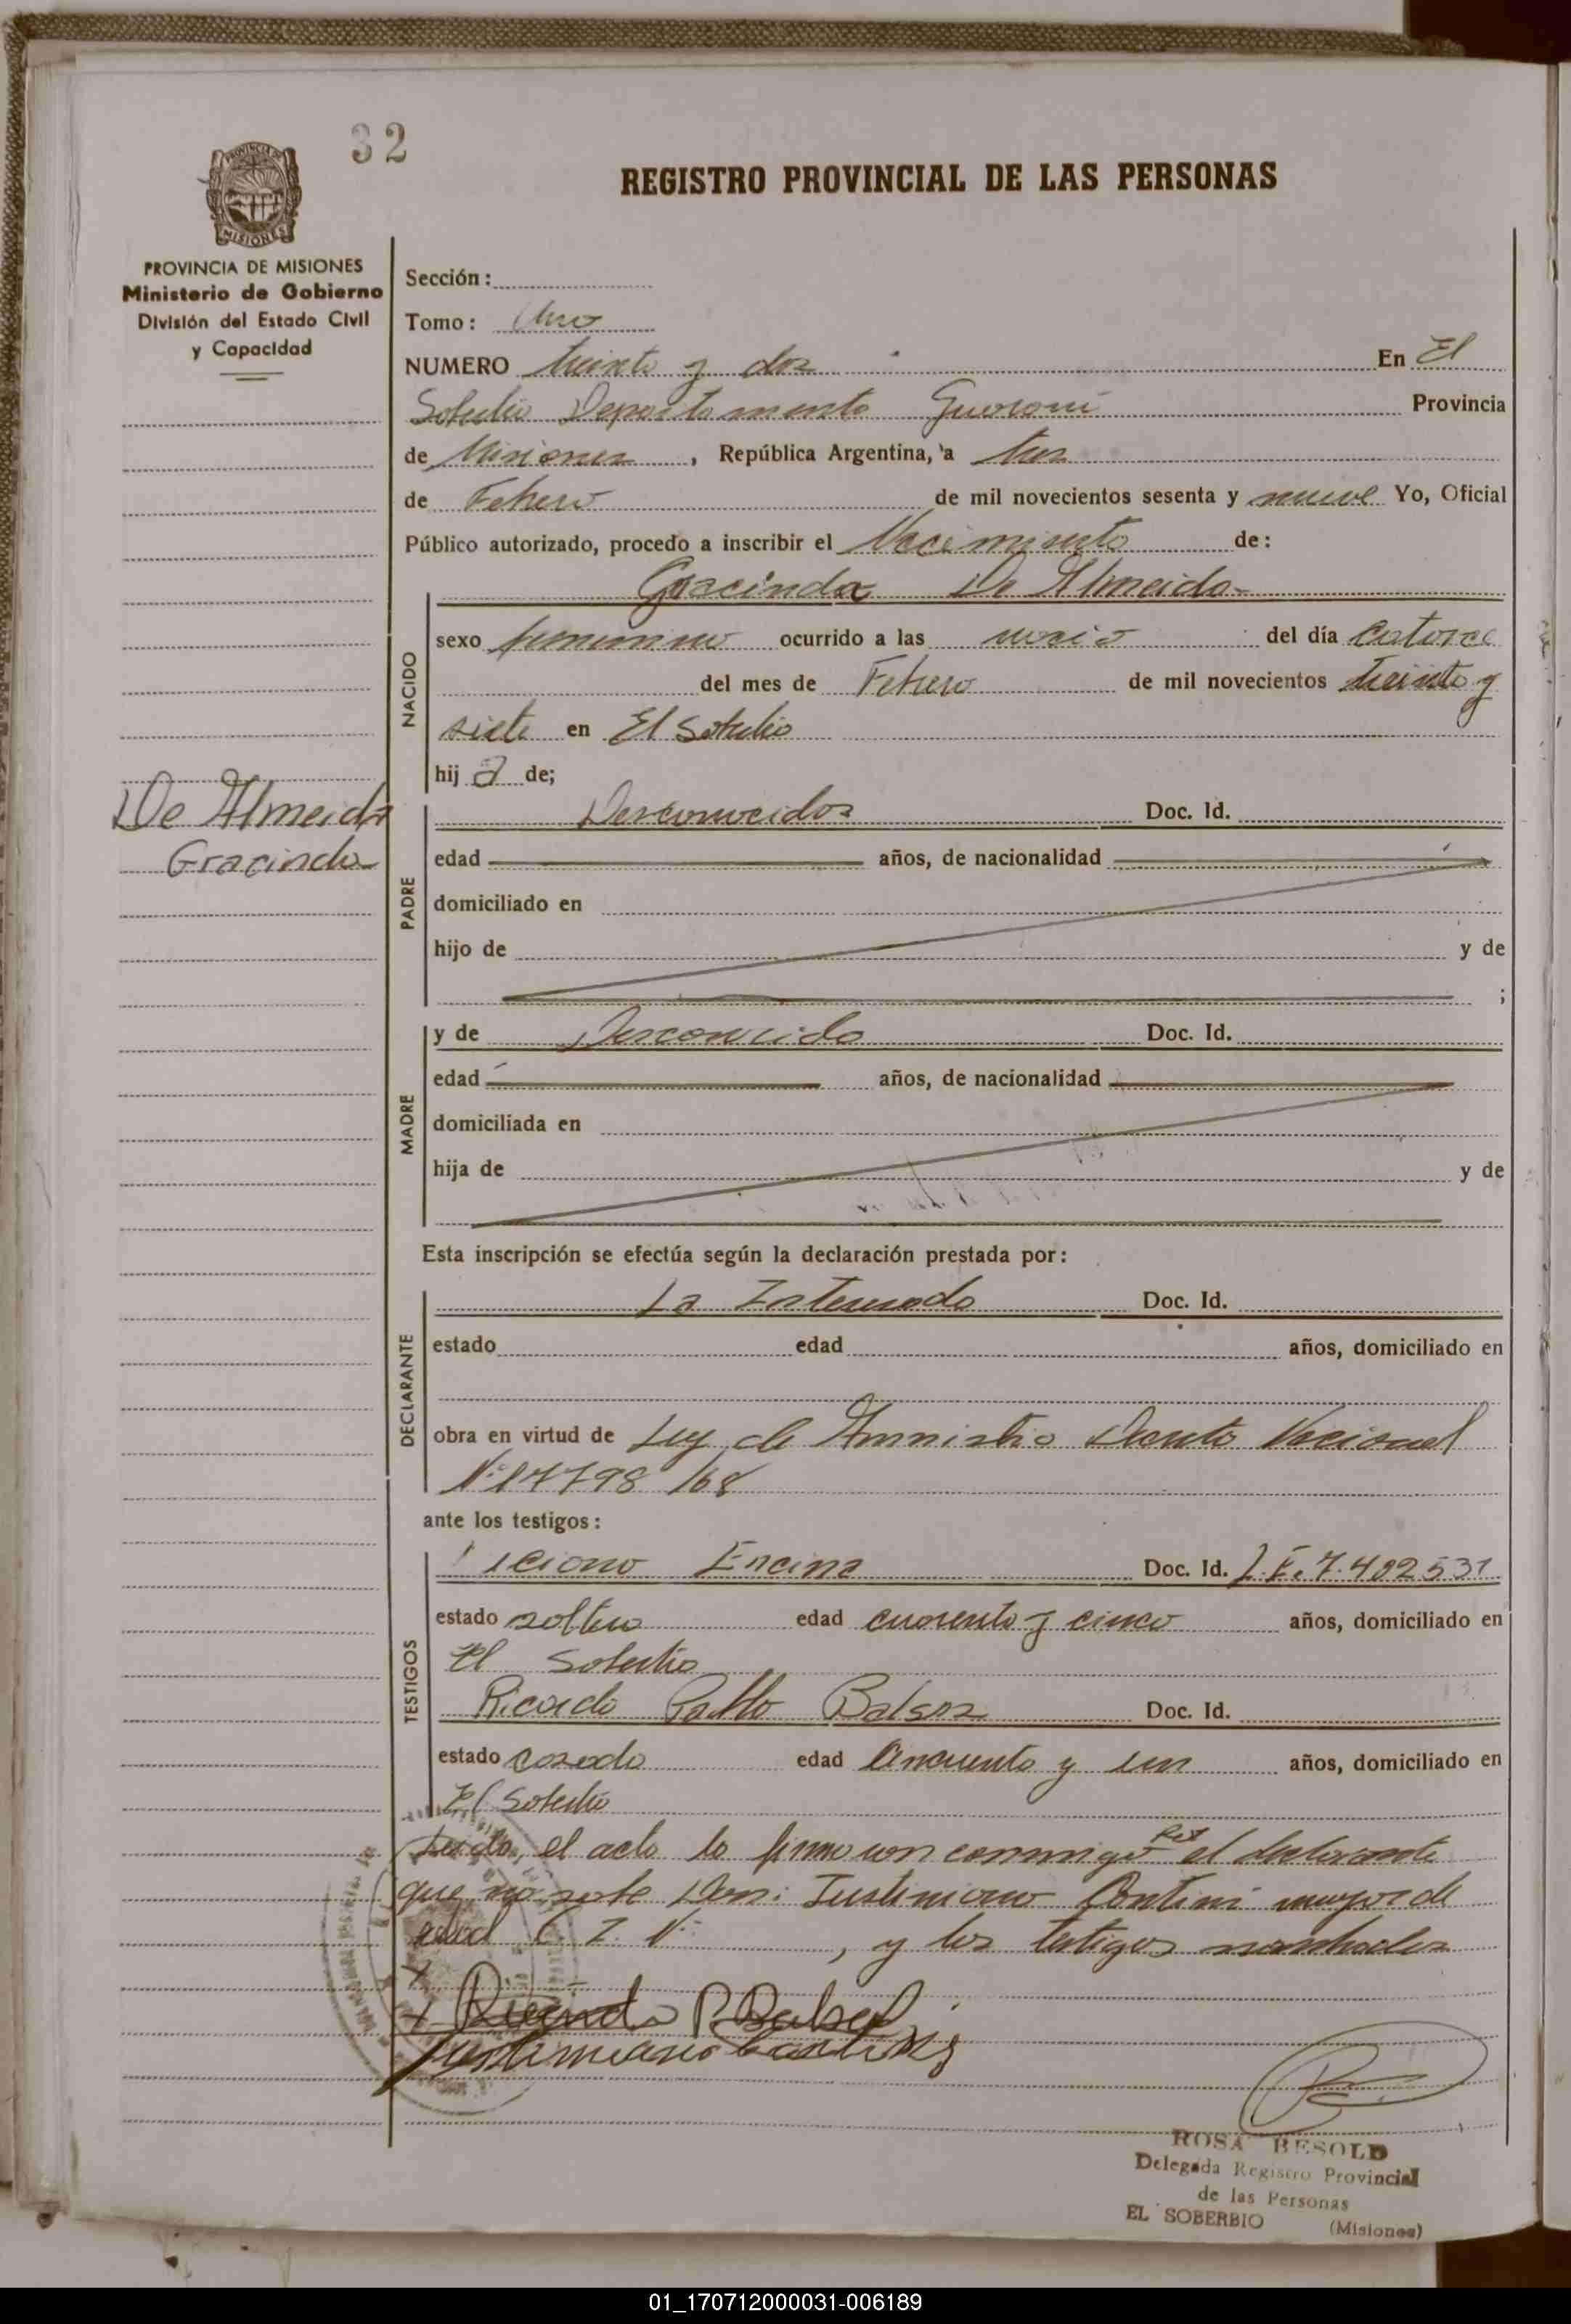 32
REGISTRO PROVINCIAL DE LAS PERSONAS
PROVINCIA DE MISIONES
Ministerio de Gobierno
División del Estado Civil
y Capacidad
Sección:
Tomo: Uno
NUMERO treinta y dos En El
Soberbio Departamento Guaraní Provincia
de Misiones, República Argentina, a tres
de Febrero de mil novecientos sesenta y nueve Yo, Oficial
Público autorizado, procedo a inscribir el Nacimiento de:
Gracinda De Almeida
NACIDO
sexo femenino ocurrido a las del día catorce
del mes de Febrero de mil novecientos treinta y
siete en El Soberbio
hij a de;
De Almeida
Gracinda
PADRE
Desconocidos Doc. Id.
edad años, de nacionalidad
domiciliado en
hijo de y de
;
MADRE
y de Desconocido Doc. Id.
edad años, de nacionalidad
domiciliada en
hija de y de
Esta inscripción se efectúa según la declaración prestada por:
DECLARANTE
La Interesada Doc. Id.
estado edad años, domiciliado en
obra en virtud de Ley de Amnistia Decreto Nacional
Nº 17798/68
ante los testigos:
TESTIGOS
Encina Doc. Id. L.E. 7.402531
estado soltero edad cuarenta y cinco años, domiciliado en
El Soberbio
Ricardo Pablo Balsa Doc. Id.
estado casado edad cincuenta y un años, domiciliado en
El Soberbio
Leida, el acta la firmaron conmigo por el declarante
que no sabe Don: Justiniano Contini mayor de
edad C. I. Nº , y los testigos nombrados
ROSA BESOLD
Delegada Registro Provincial
de las Personas
EL SOBERBIO (Misiones)
01_170712000031-006189